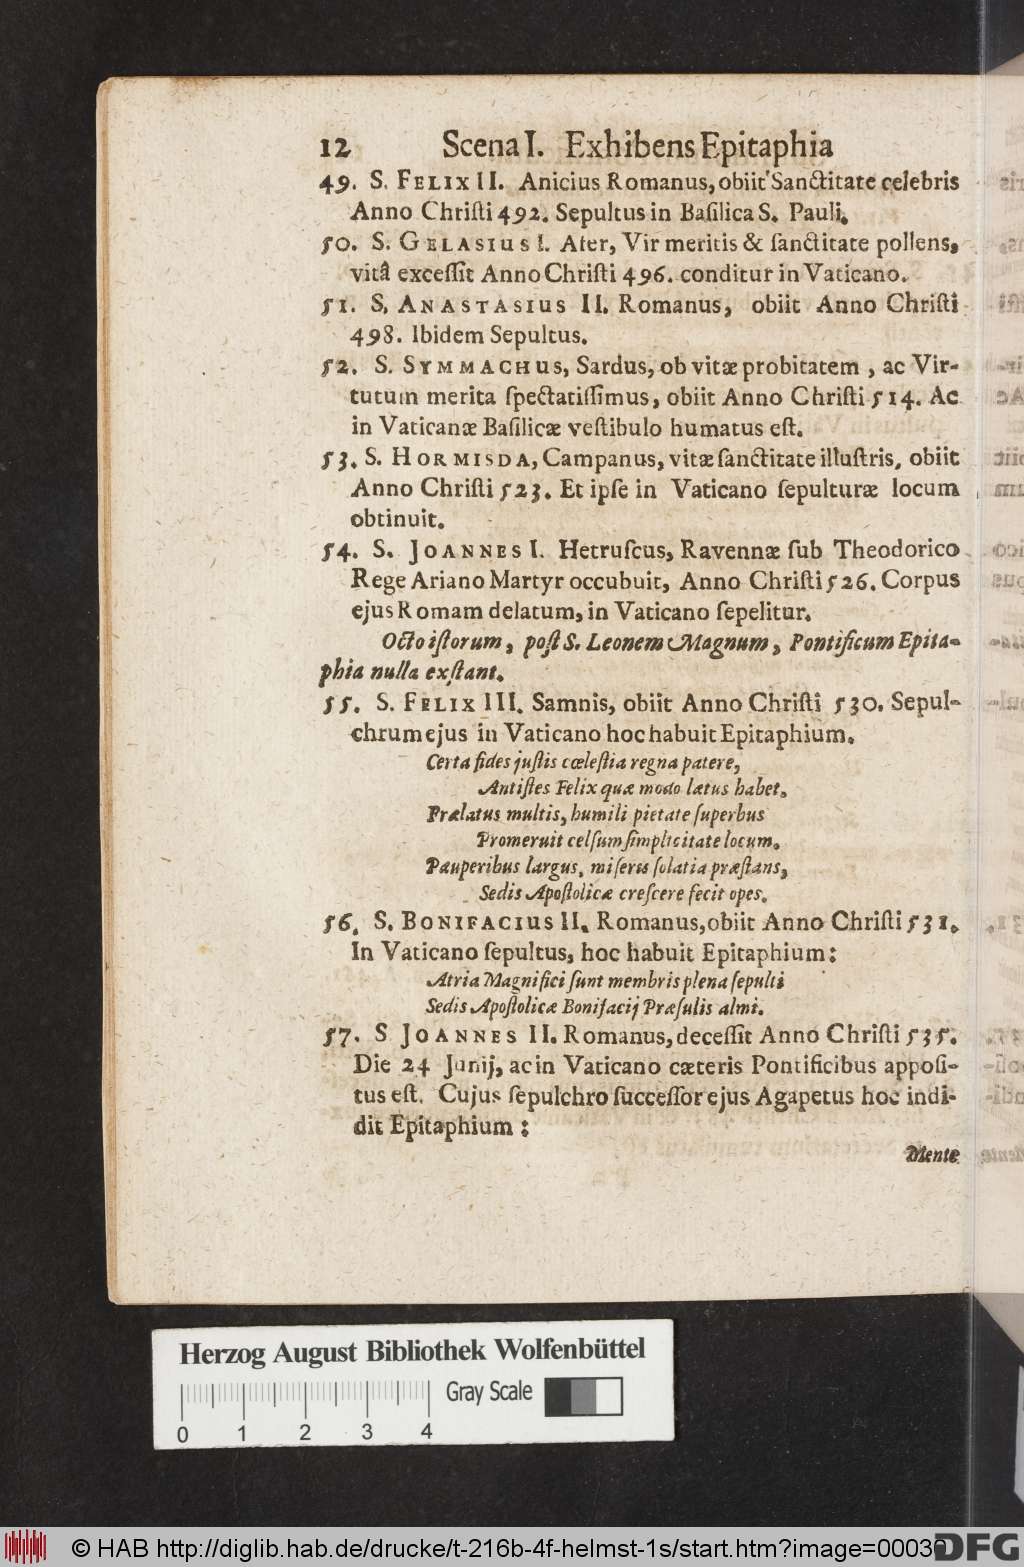 12 Scena I. Exhibens Epitaphia
49. S. FELIX II. Anicius Romanus, obiit Sanctitate celebris
Anno Chriſti 492. Sepultus in Baſilica S. Pauli.
50. S. GELASIUS I. Afer, Vir meritis & ſanctitate pollens,
vitâ exceſſit Anno Chriſti 496. conditur in Vaticano.
51. S. ANASTASIUS II. Romanus, obiit Anno Chriſti
498. Ibidem Sepultus.
52. S. SYMMACHUS, Sardus, ob vitæ probitatem, ac Vir-
tutum merita ſpectatiſſimus, obiit Anno Chriſti 514. Ac
in Vaticanæ Baſilicæ veſtibulo humatus eſt.
53. S. HORMISDA, Campanus, vitæ ſanctitate illuſtris, obiit
Anno Chriſti 523. Et ipſe in Vaticano ſepulturæ locum
obtinuit.
54. S. JOANNES I. Hetruſcus, Ravennæ ſub Theodorico
Rege Ariano Martyr occubuit, Anno Chriſti 526. Corpus
ejus Romam delatum, in Vaticano ſepelitur.
Octo iſtorum, poſt S. Leonem Magnum, Pontificum Epita-
phia nulla exſtant.
55. S. FELIX III. Samnis, obiit Anno Chriſti 530. Sepul-
chrum ejus in Vaticano hoc habuit Epitaphium.
Certa fides juſtis cœleſtia regna patere,
Antiſtes Felix quæ modo lætus habet.
Prælatus multis, humili pietate ſuperbus
Promeruit celſum ſimplicitate locum.
Pauperibus largus, miſeris ſolatia præſtans,
Sedis Apoſtolicæ creſcere fecit opes.
56. S. BONIFACIUS II. Romanus, obiit Anno Chriſti 531.
In Vaticano ſepultus, hoc habuit Epitaphium:
Atria Magnifici ſunt membris plena ſepulti
Sedis Apoſtolicæ Bonifacij Præſulis almi.
57. S JOANNES II. Romanus, deceſſit Anno Chriſti 535.
Die 24 Junij, ac in Vaticano cæteris Pontificibus appoſi-
tus eſt. Cujus ſepulchro ſucceſſor ejus Agapetus hoc indi-
dit Epitaphium:
Mente
Herzog August Bibliothek Wolfenbüttel
Gray Scale
0 1 2 3 4
© HAB http://diglib.hab.de/drucke/t-216b-4f-helmst-1s/start.htm?image=00030
DFG